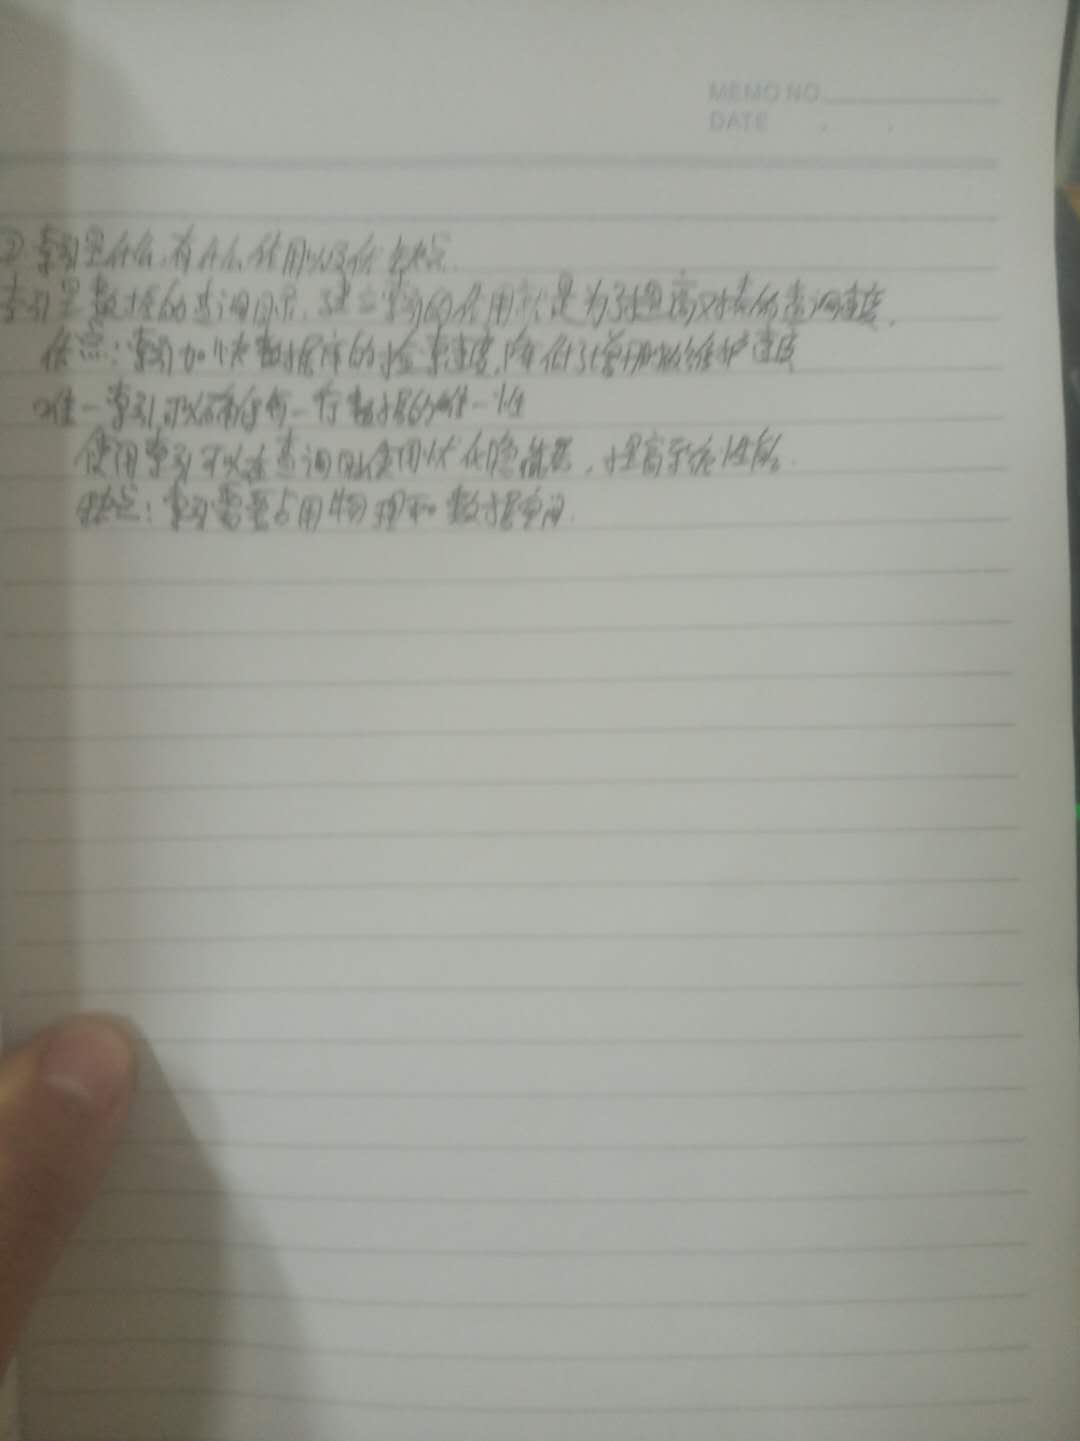 MEMO NO.
DATE
② 索引是什么.有什么作用以及优缺点.
索引是数据的查询目录.建立索引的作用就是为了提高对表的查询速度.
优点:索引加快数据库的检索速度.降低了增删改维护速度
唯一索引,可以确保每一行数据的唯一性
使用索引可以在查询时使用优化隐藏器,提高系统性能.
缺点:索引需要占用物理和数据空间.